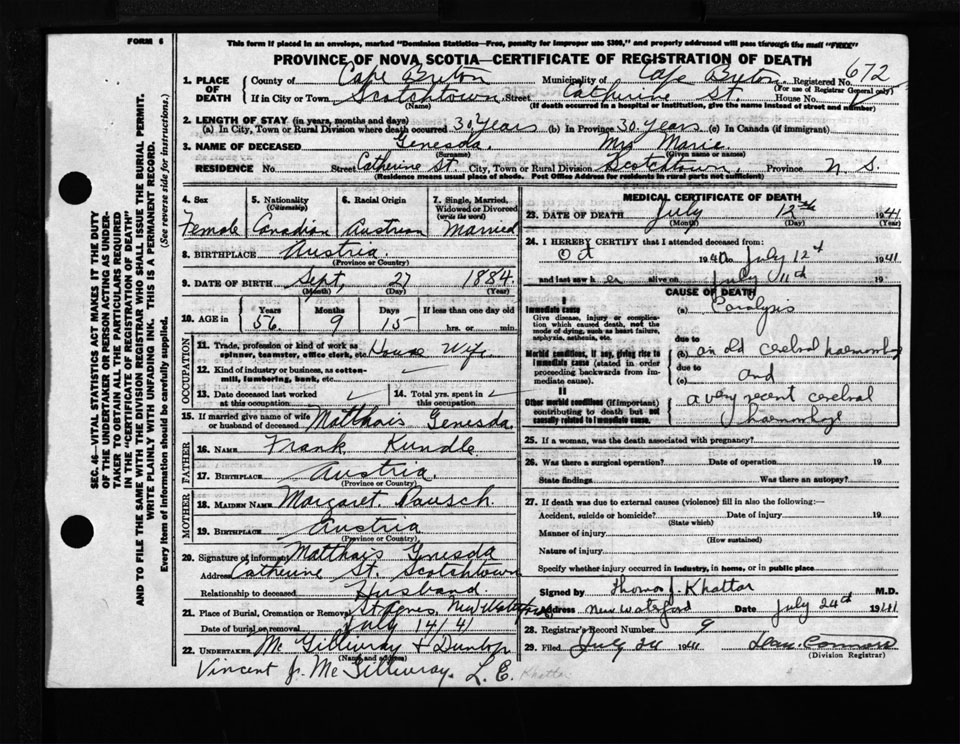 FORM 6
This form if placed in an envelope, marked "Dominion Statistics—Free, penalty for improper use $300," and properly addressed will pass through the mail "FREE"
PROVINCE OF NOVA SCOTIA—CERTIFICATE OF REGISTRATION OF DEATH
1. PLACE OF DEATH County of Cape Breton Municipality of Cape Breton Registered No. 672
(For use of Registrar General only)
If in City or Town Scotchtown Street Catherine St. House No.
(Name) (If death occurred in a hospital or institution, give the name instead of street and number)
2. LENGTH OF STAY (in years, months and days)
(a) In City, Town or Rural Division where death occurred 30 Years (b) In Province 30 Years (c) In Canada (if immigrant)
3. NAME OF DECEASED Genesda. Mrs Marie.
(Surname) (Given name or names)
RESIDENCE No. Street Catherine St. City, Town or Rural Division Scotchtown, Province N. S.
(Residence means usual place of abode. Post Office Address for residents in rural parts not sufficient)
4. Sex Female
5. Nationality (Citizenship) Canadian
6. Racial Origin Austrian
7. Single, Married, Widowed or Divorced (write the word) Married
8. BIRTHPLACE Austria
(Province or Country)
9. DATE OF BIRTH Sept, 27 1884.
(Month) (Day) (Year)
10. AGE in Years 56 Months 9 Days 15 If less than one day old hrs. or min.
OCCUPATION
11. Trade, profession or kind of work as spinner, teamster, office clerk, etc. House Wife
12. Kind of industry or business, as cotton-mill, lumbering, bank, etc.
13. Date deceased last worked at this occupation
14. Total yrs. spent in this occupation
15. If married give name of wife or husband of deceased Matthais Genesda
FATHER
16. NAME Frank Kundle
17. BIRTHPLACE Austria.
(Province or Country)
MOTHER
18. MAIDEN NAME Margaret Rausch.
19. BIRTHPLACE Austria
(Province or Country)
20. Signature of informant Matthais Genesda
Address Catherine St. Scotchtown
Relationship to deceased Husband
21. Place of Burial, Cremation or Removal St Agnes, New Waterford
Date of burial or removal July 14/41
22. UNDERTAKER Mc Gillivray & Dunlop
(Name and address)
Vincent J. Mc Gillivray. L. E.
Khattar
MEDICAL CERTIFICATE OF DEATH
23. DATE OF DEATH July 12th 1941
(Month) (Day) (Year)
24. I HEREBY CERTIFY that I attended deceased from:
Oct 1940 to July 12th 1941
and last saw her alive on July 11th 19
CAUSE OF DEATH
I
Immediate cause
Give disease, injury or complication which caused death, not the mode of dying, such as heart failure, asphyxia, asthenia, etc.
(a) Paralysis
due to
Morbid conditions, if any, giving rise to immediate cause (stated in order proceeding backwards from immediate cause).
(b) an old cerebral haemorrhage
due to
(c) and
II
Other morbid conditions (if important) contributing to death but not causally related to immediate cause.
a very recent cerebral
haemorrhage
25. If a woman, was the death associated with pregnancy?
26. Was there a surgical operation? Date of operation 19
State findings Was there an autopsy?
27. If death was due to external causes (violence) fill in also the following:—
Accident, suicide or homicide? Date of injury 19
(State which)
Manner of injury
(How sustained)
Nature of injury
Specify whether injury occurred in industry, in home, or in public place
Signed by Thomas J. Khattar M.D.
Address New Waterford Date July 24th 1941
28. Registrar's Record Number 9
29. Filed July 24 1941
(Division Registrar)
SEC. 46—VITAL STATISTICS ACT MAKES IT THE DUTY
OF THE UNDERTAKER OR PERSON ACTING AS UNDER-
TAKER TO OBTAIN ALL THE PARTICULARS REQUIRED
IN THE "CERTIFICATE OF REGISTRATION OF DEATH"
AND TO FILE THE SAME WITH THE DIVISION REGISTRAR WHO SHALL ISSUE THE BURIAL PERMIT.
WRITE PLAINLY WITH UNFADING INK. THIS IS A PERMANENT RECORD.
Every item of information should be carefully supplied. (See reverse side for instructions.)